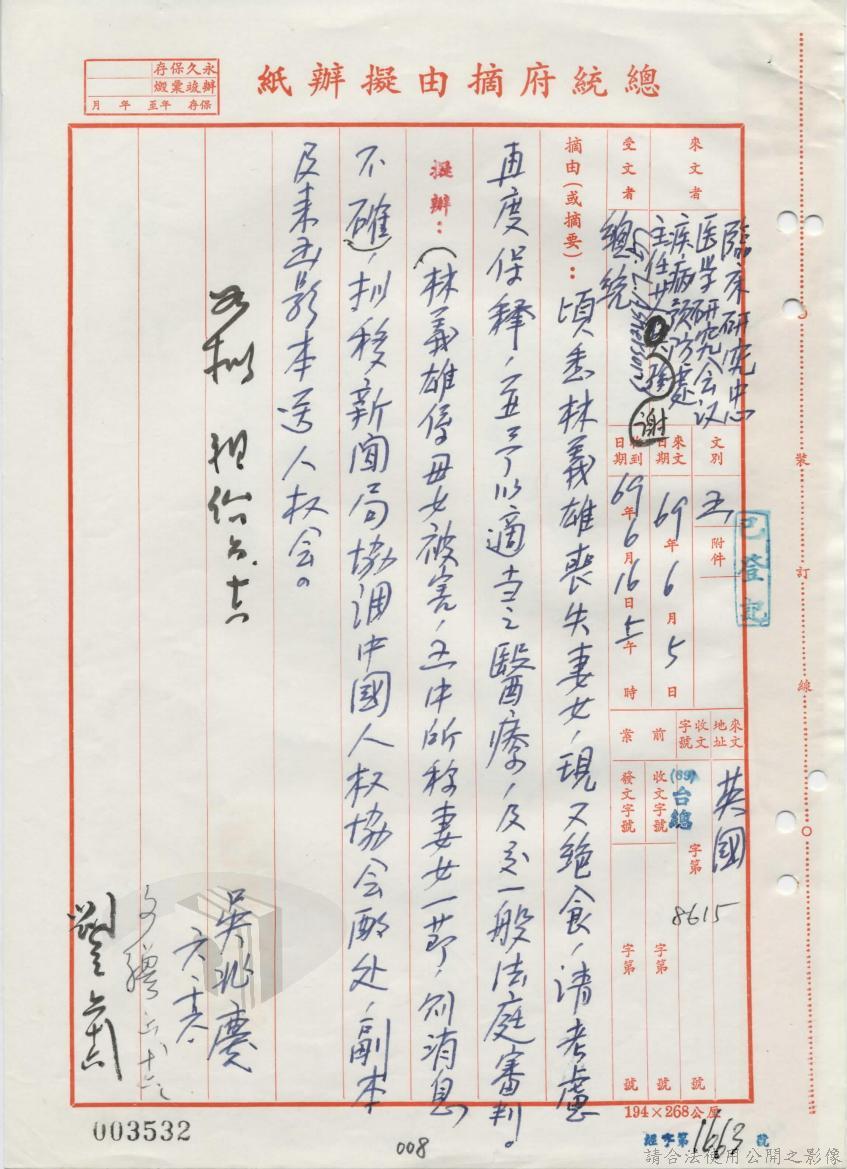 總統府摘由擬辦紙
永久保存
辦竣彙燬
保存 年至 年 月
來文者
臨床研究中心
医学研究会议
疾病預防處
主任
謝
受文者
總統
文別
附件
來文日期
69年6月5日
收到日期
69年6月16日 午 時
來文地址
英國
收文字號
(69)台總 字第 8615 號
前案
收文字號 字第 號
發文字號 字第 號
已登記
摘由(或摘要):頃悉林義雄喪失妻女,現又絕食,請考慮
再度保釋,並予以適當之醫療,及交一般法庭審判。
擬辦:林義雄係母女被害,函中所称妻女一節,似消息
不確,擬移新聞局協調中國人权協会酌处,副本
及来函影本送人权会。
吳兆慶
六、十六、
裝 訂 線
194×268公厘
003532
008
經字第1663號
請合法使用公開之影像